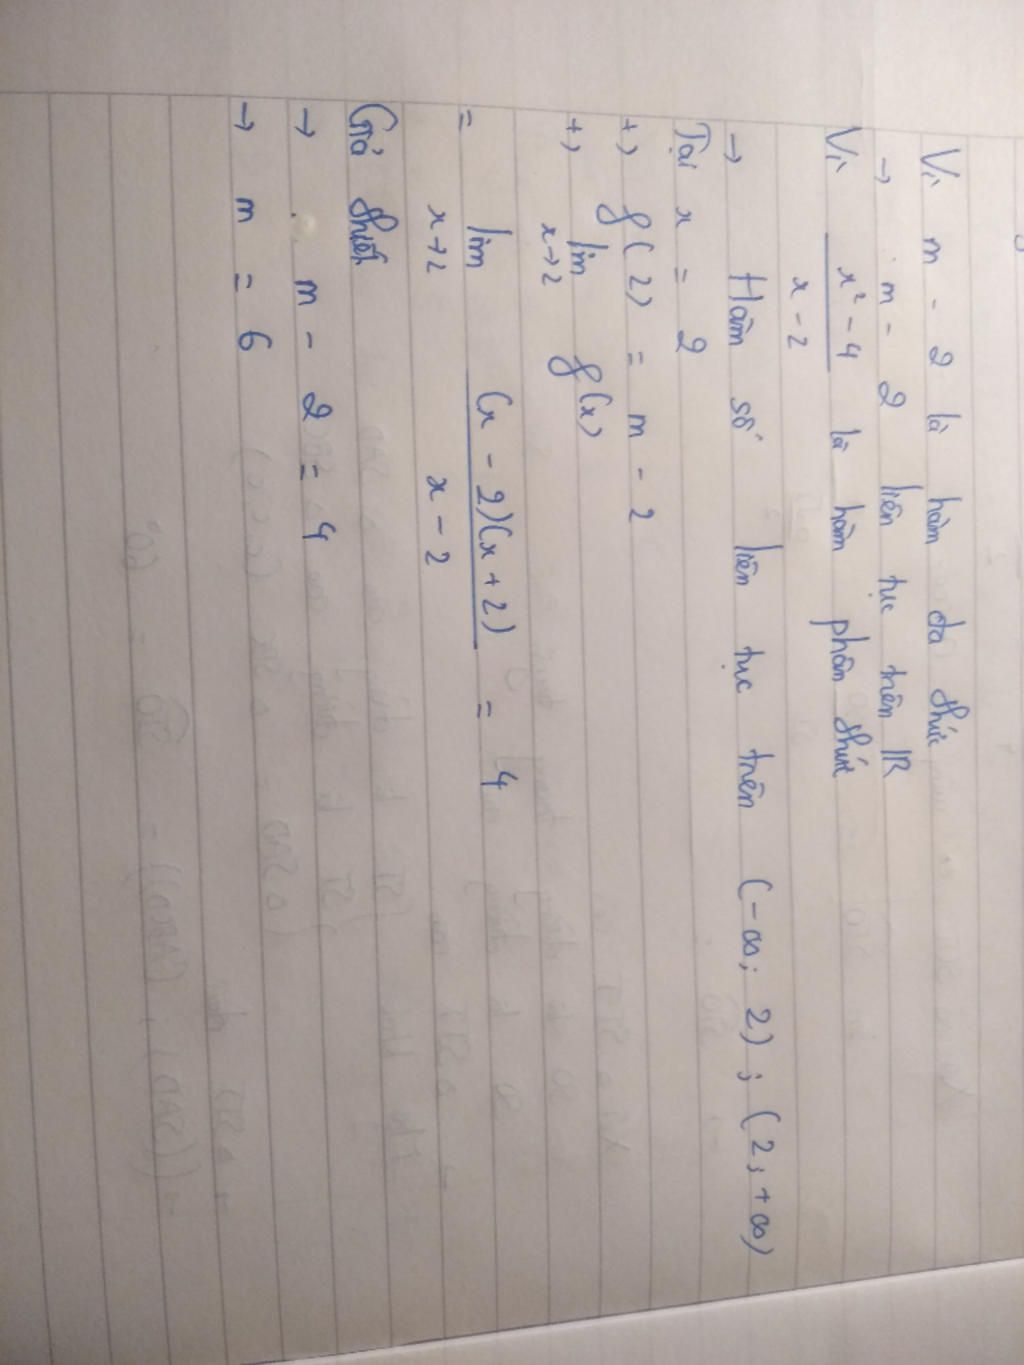 Vì m - 2 là hàm đa thức
→ m - 2 liên tục trên IR
Vì x² - 4 / x - 2 là hàm phân thức
→ Hàm số liên tục trên (-∞; 2); (2; +∞)
Tại x = 2
+, f(2) = m - 2
+, lim x→2 f(x)
= lim x→2 (x - 2)(x + 2) / x - 2 = 4
Giả thiết
→ m - 2 = 4
→ m = 6